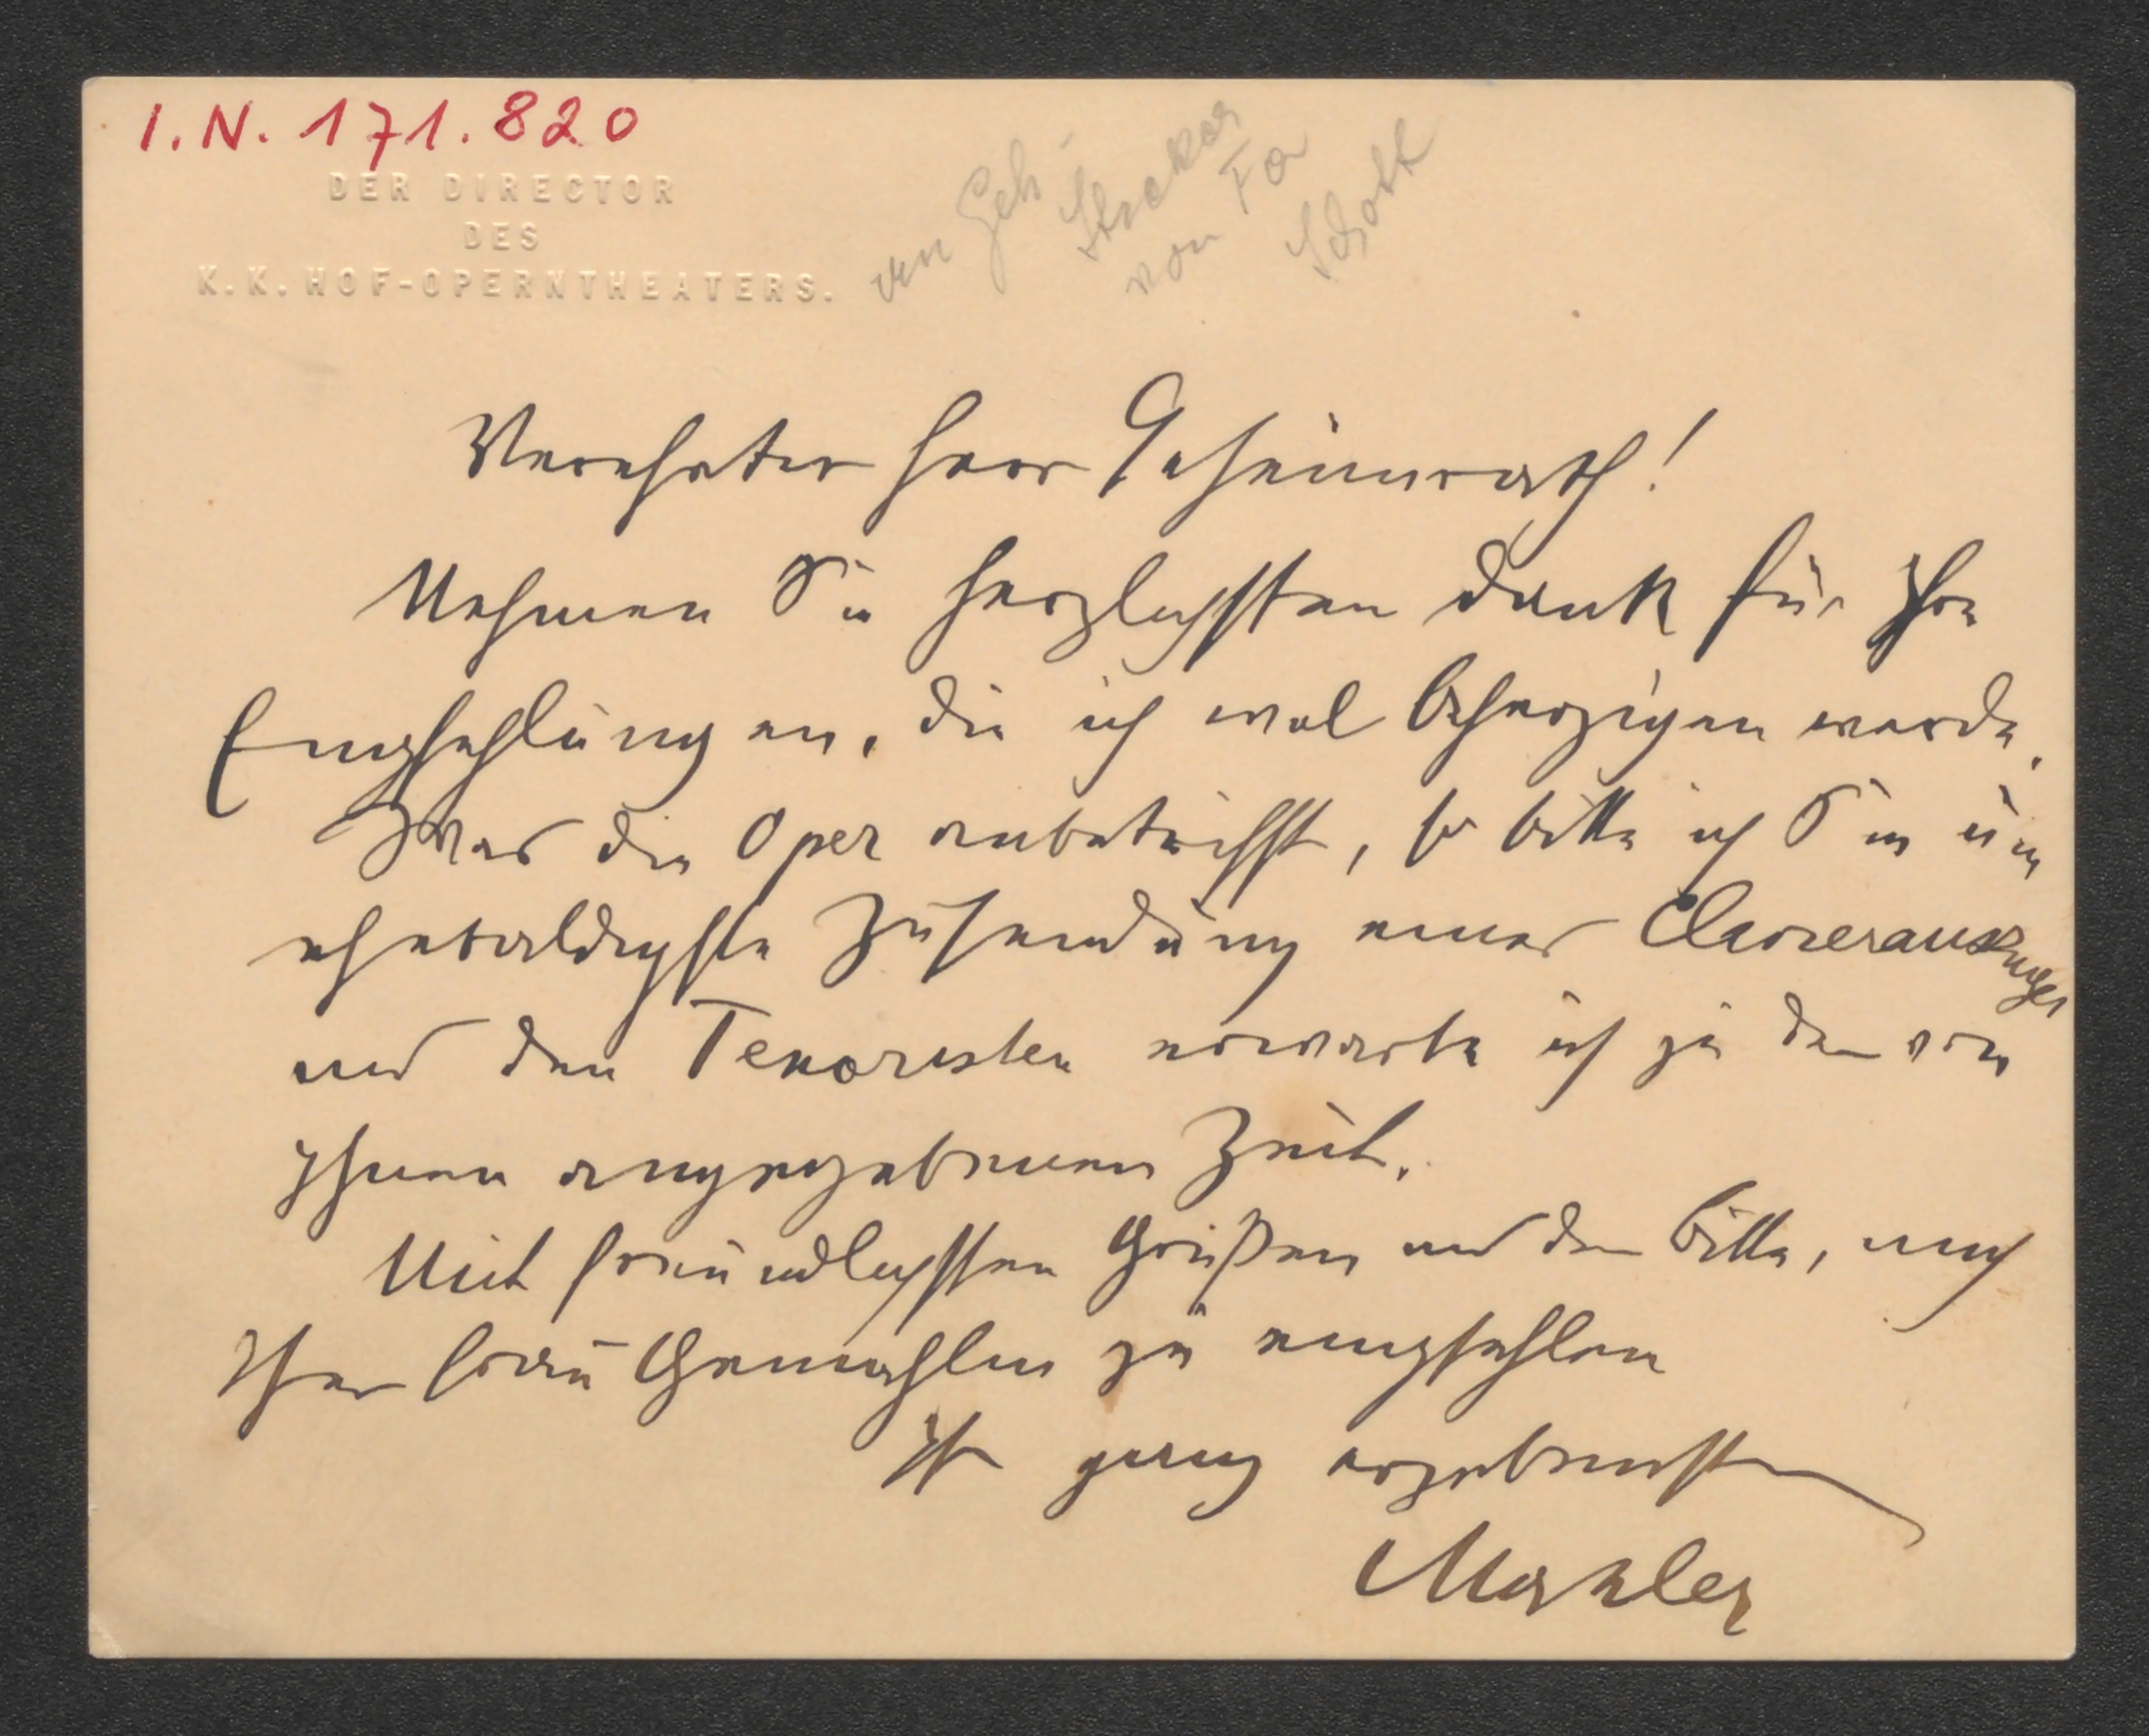 I.N. 171.820
DER DIRECTOR
DES
K.K. HOF-OPERNTHEATERS.
von Geh.
Strecker
von Fa
Schott
Verehrter Herr Geheimrath!
Nehmen Sie herzlichsten Dank für Ihre
Empfehlungen, die ich wol beherzigen werde.
Was die Oper anbetrifft, so bitte ich Sie um
ehebaldigste Zusendung eines Clavierauszuges
und den Tenoristen erwarte ich zu der von
Ihnen angegebenen Zeit.
Mit freundlichsten Grüßen und der Bitte, mich
Ihrer Frau Gemahlin zu empfehlen
Ihr ganz ergebenster
Mahler